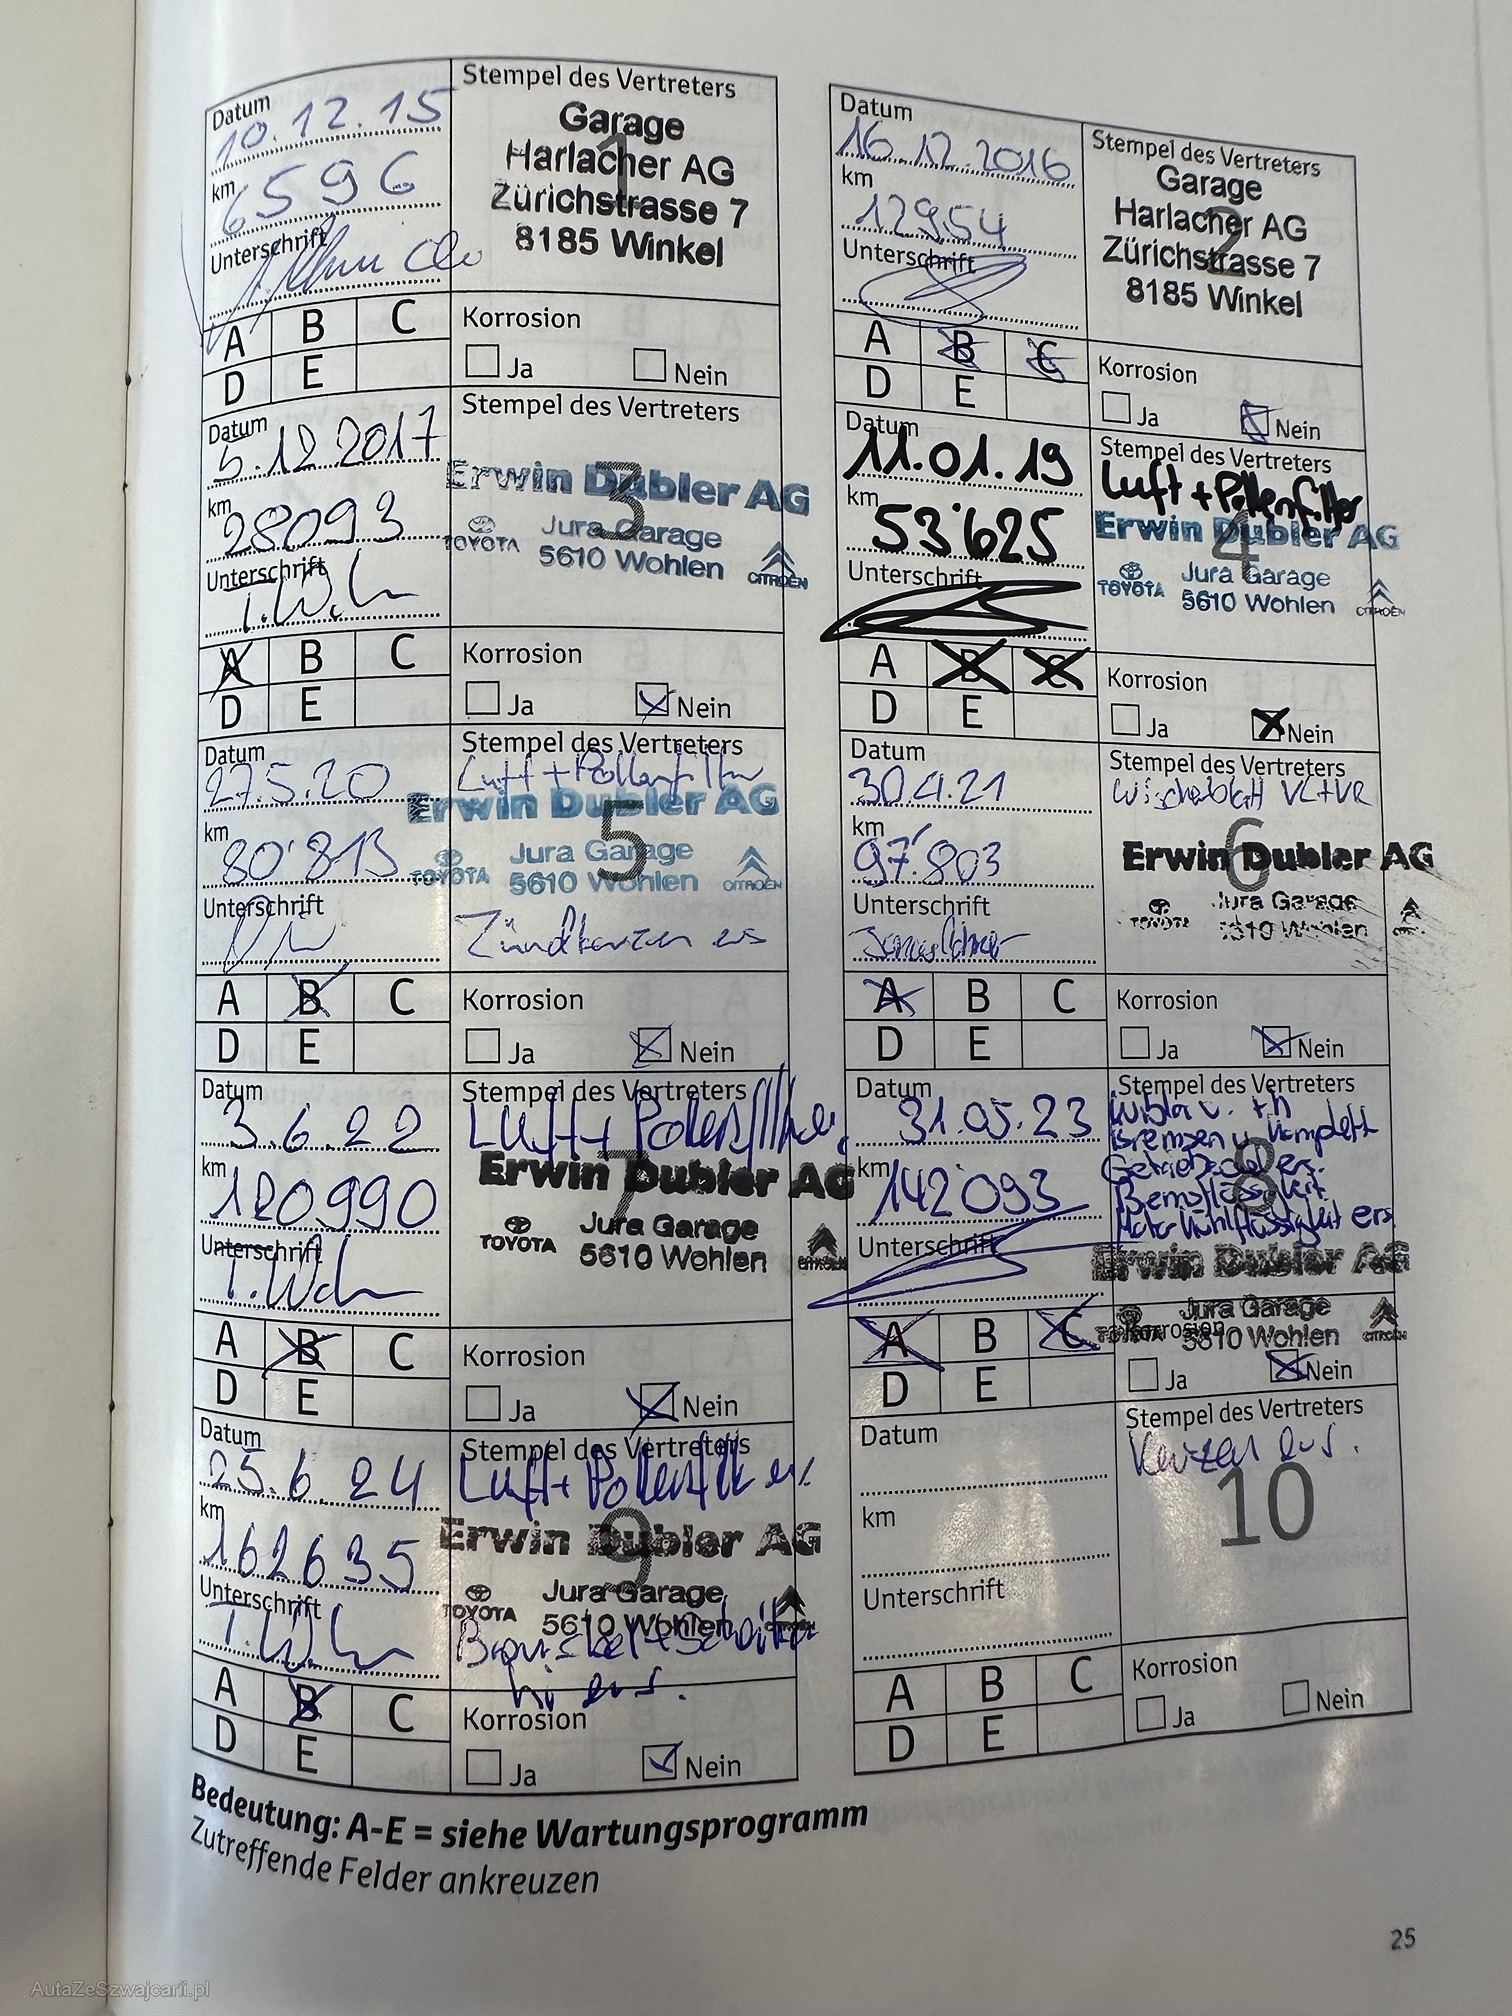 Datum
10.12.15
km
6596
Unterschrift
Stempel des Vertreters
1
Garage
Harlacher AG
Zürichstrasse 7
8185 Winkel
A B C
D E
Korrosion
Ja Nein
Datum
16.12.2016
km
12954
Unterschrift
Stempel des Vertreters
2
Garage
Harlacher AG
Zürichstrasse 7
8185 Winkel
A B C
D E
Korrosion
Ja Nein
Datum
5.12.2017
km
28093
Unterschrift
Stempel des Vertreters
3
Erwin Dubler AG
TOYOTA
Jura Garage
5610 Wohlen
CITROËN
A B C
D E
Korrosion
Ja Nein
Datum
11.01.19
km
53'625
Unterschrift
Stempel des Vertreters
Luft + Pollenfilter
4
Erwin Dubler AG
TOYOTA
Jura Garage
5610 Wohlen
CITROËN
A B C
D E
Korrosion
Ja Nein
Datum
27.5.20
km
80'813
Unterschrift
Stempel des Vertreters
Luft + Pollenfilter
5
Erwin Dubler AG
TOYOTA
Jura Garage
5610 Wohlen
CITROËN
Zündkerzen ers
A B C
D E
Korrosion
Ja Nein
Datum
30.4.21
km
97'803
Unterschrift
Stempel des Vertreters
Wischerblatt VL+VR
6
Erwin Dubler AG
TOYOTA
Jura Garage
5610 Wohlen
A B C
D E
Korrosion
Ja Nein
Datum
3.6.22
km
120990
Unterschrift
Stempel des Vertreters
Luft + Pollenfilter
7
Erwin Dubler AG
TOYOTA
Jura Garage
5610 Wohlen
CITROËN
A B C
D E
Korrosion
Ja Nein
Datum
31.05.23
km
142'093
Unterschrift
Stempel des Vertreters
Bremsen v komplett
Getriebeoel ers.
Bremsflüssigkeit
Motorkühlflüssigkeit ers
8
Erwin Dubler AG
TOYOTA
Jura Garage
5610 Wohlen
CITROËN
A B C
D E
Korrosion
Ja Nein
Datum
25.6.24
km
162635
Unterschrift
Stempel des Vertreters
Luft + Pollenfilt ers
9
Erwin Dubler AG
TOYOTA
Jura Garage
5610 Wohlen
hi ers.
A B C
D E
Korrosion
Ja Nein
Datum
km
Unterschrift
Stempel des Vertreters
Kerzen ers.
10
A B C
D E
Korrosion
Ja Nein
Bedeutung: A-E = siehe Wartungsprogramm
Zutreffende Felder ankreuzen
25
AutaZeSzwajcarii.pl